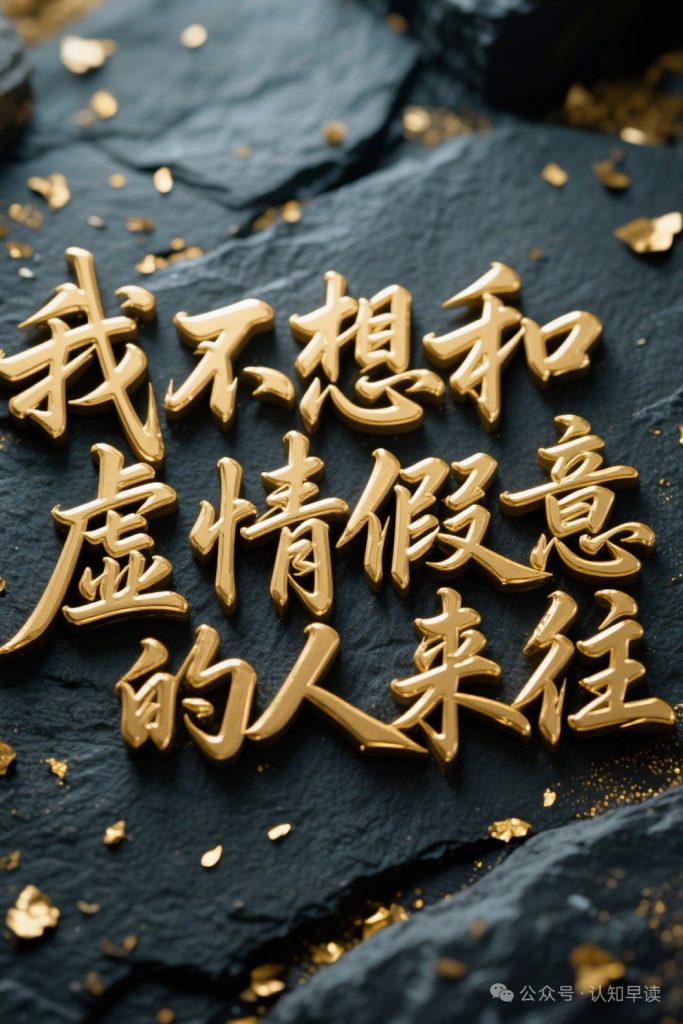 我不想和
虚情假意
的人来往
公众号·认知早读